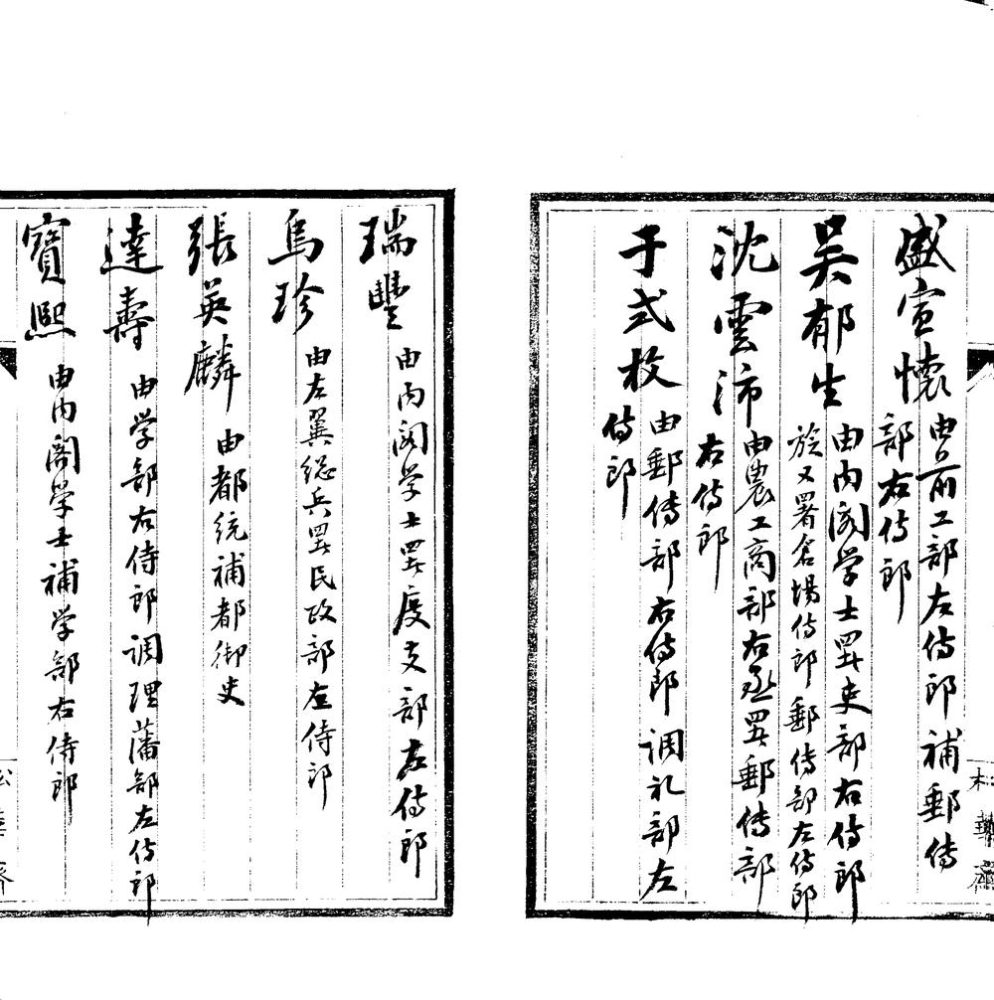 盛宣懷 由前工部左侍郎補郵傳
部右侍郎
吴郁生 由内阁学士署吏部右侍郎
旋又署倉場侍郎郵傳部左侍郎
沈雲沛 由農工商部右丞署郵傳部
右侍郎
于式枚 由郵傳部右侍郎调礼部左
侍郎
松華齋
瑞豐 由内阁学士署度支部左侍郎
烏珍 由左翼総兵署民政部左侍郎
張英麟 由都統補都御史
達壽 由学部右侍郎调理藩部左侍郎
寶熙 由内閣学士補学部右侍郎
松華齋